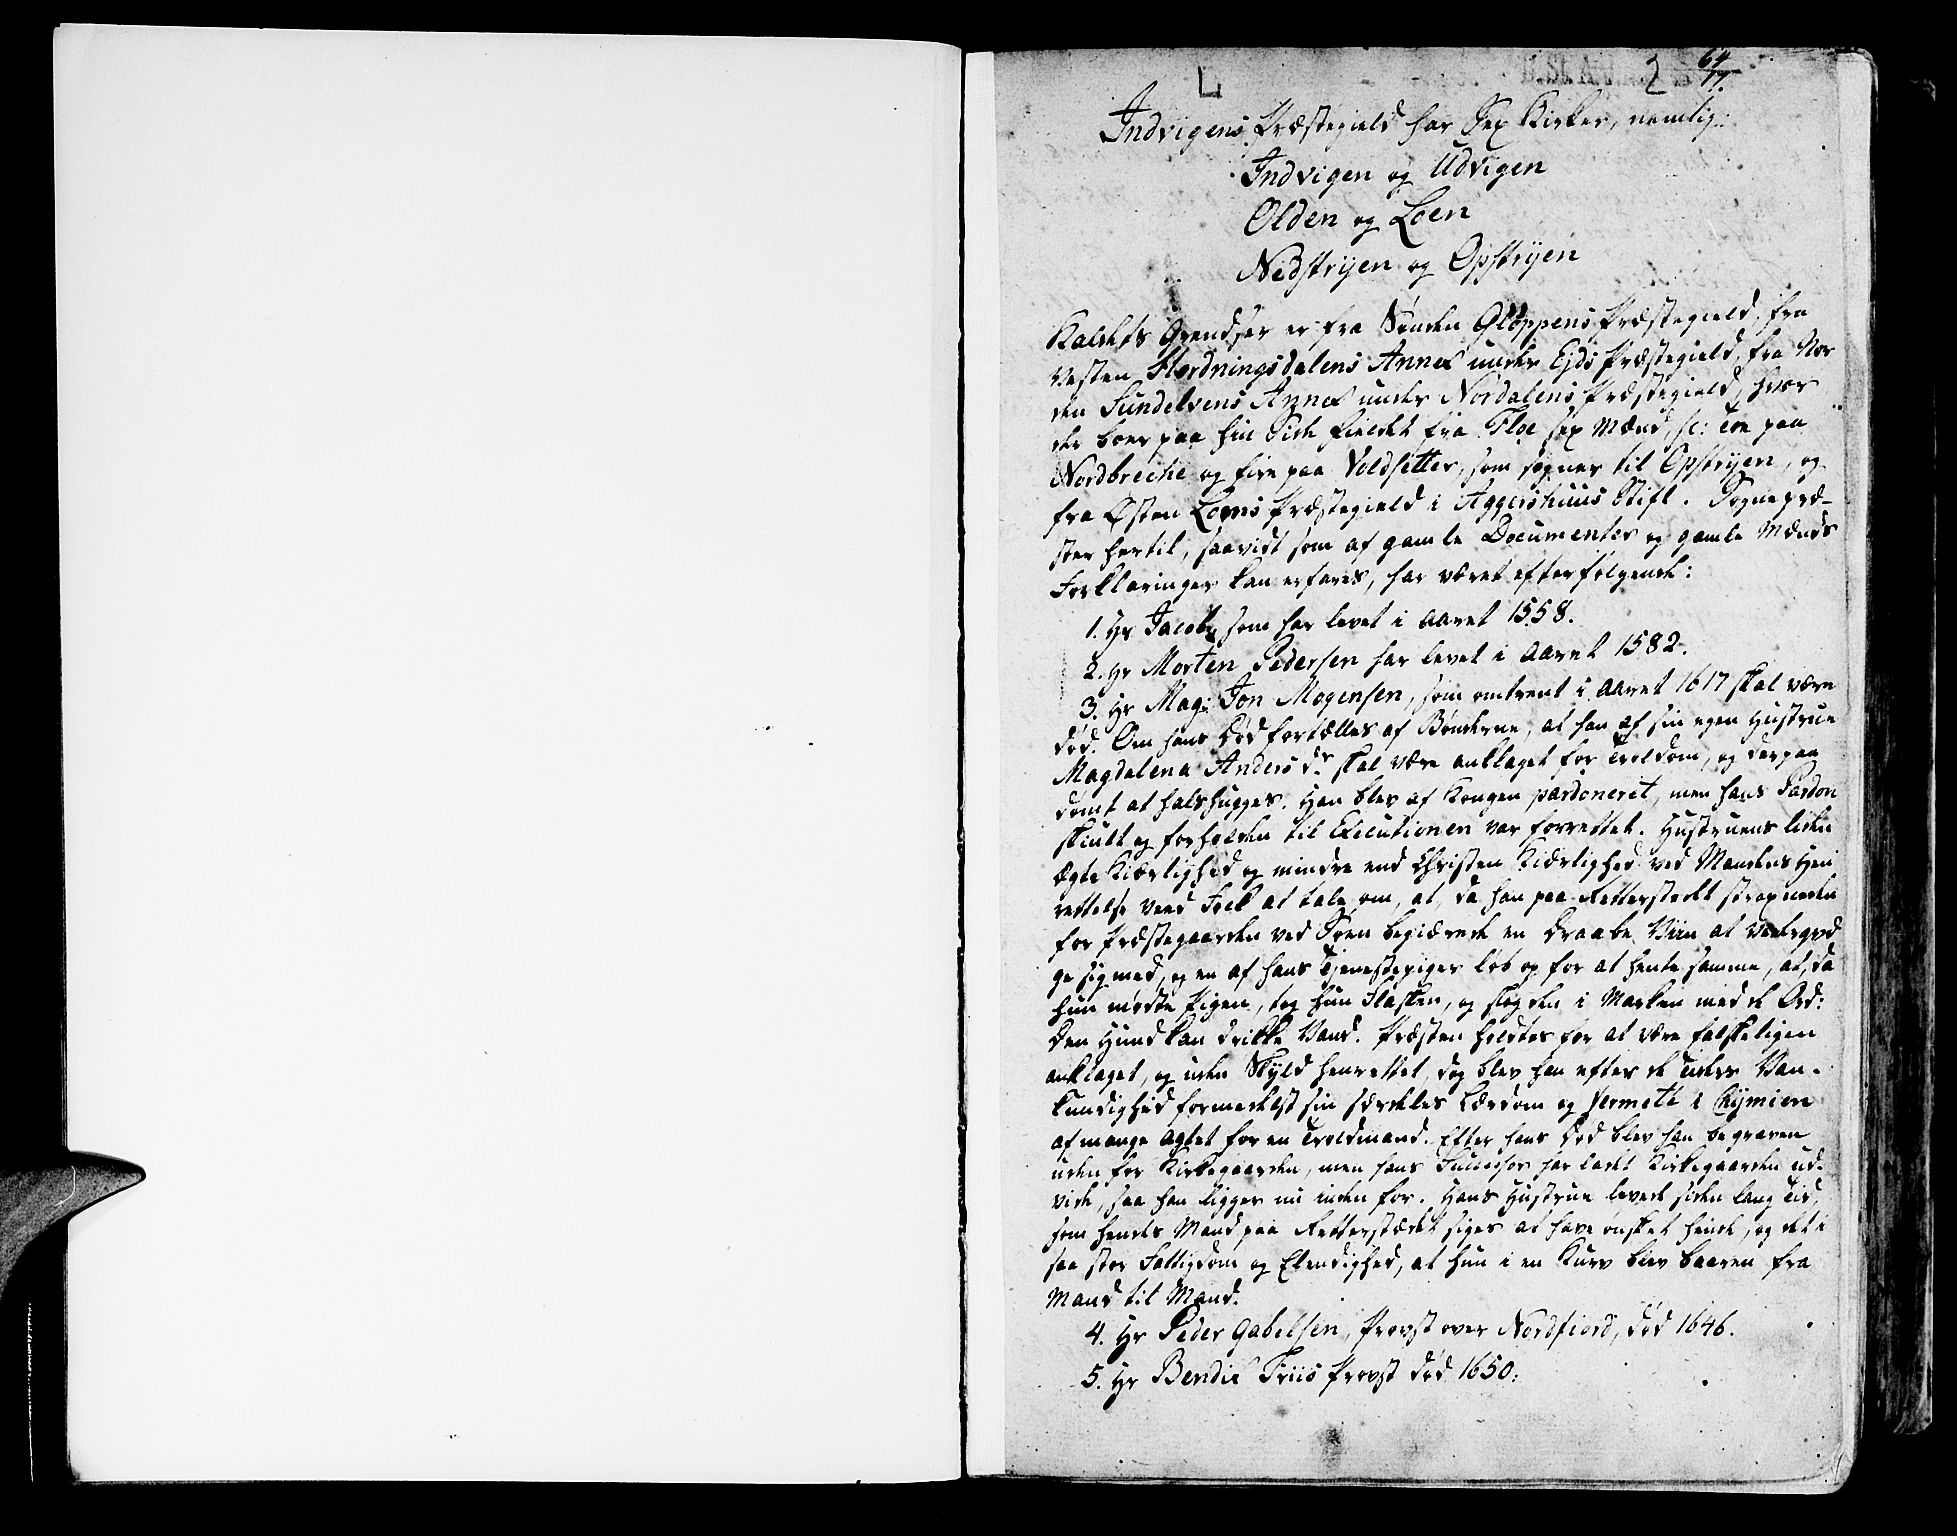 L
2 64/17.
Indvigens Præstegield har Sex Kirker, nemlig:
Indvigen og Udvigen
Olden og Loen
Nedstryen og Opstryen
Kaldets Grendser er fra Sønden Gloppens Præstegield, fra
Vesten Hordningsdalens Annex under Ejds Præstegield, fra Nor
den Sundelvens Annex under Nordalens Præstegield, hvor
der boer paa hin Side Fieldet fra Floe sex Mænd, sc: Toe paa
Nordbreche og fire paa Voldsetter, som søgner til Opstryen, og
fra Østen Loms Præstegield i Aggershuus Stift. Sognepræ-
ster hertil, saavidt som af gamle Documenter og gamle Mænds
Forklaringer kan erfares, har været efterfølgende:
1. Hr Jacob, som har levet i Aaret 1558.
2. Hr Morten Pedersen har levet i Aaret 1582.
3. Hr Mag: Jon Mogensen, som omtrent i Aaret 1617 skal være
død. Om hans Død fortælles af Bønderne, at han af sin egen Hustrue
Magdalena Anders dr. skal være anklaget for Troldom, og derpaa
dømt at halshugges. Han blev af Kongen pardoneret, men hans Pardon
skiult og forholden til Executionen var forrettet. Hustruens liden
ægte Kiærlighed og mindre end Christen Kiærlighed ved Mandens Hen
rettelse veed Folk at tale om, at, da han paa Retterstedet strax neden
for Præstegaarden ved Søen begiærede en Draabe Viin at vederqvæ
ge sig med, og en af hans Tjenestepiger løb op for at hente samme, at, da
hun mødte Pigen, tog hun Flasken, og slog den i Marken med de Ord:
Den Hund kan drikke Vand. Præsten holdtes for at være falskeligen
anklaget, og uden Skyld henrettet, dog blev han efter de Tiders Van-
kundighed formedelst sin særdeles Lærdom og i Chymien
af mange agtet for en Troldmand. Efter hans Død blev han begraven
uden for Kirkegaarden, men hans Successor har ladet Kirkegaarden ud-
vide, saa han ligger nu inden for. Hans Hustrue levede siden lang Tid,
som hendes Mand paa Retterstædet siges at have ønsket hende, og det i
saa stor Fattigdom og Elendighed, at hun i en Kurv blev baaren fra
Mand til Mand.
4. Hr Peder Gabelsen, Provst over Nordfiord, død 1646.
5. Hr Bendix Friis Provst død 1650.